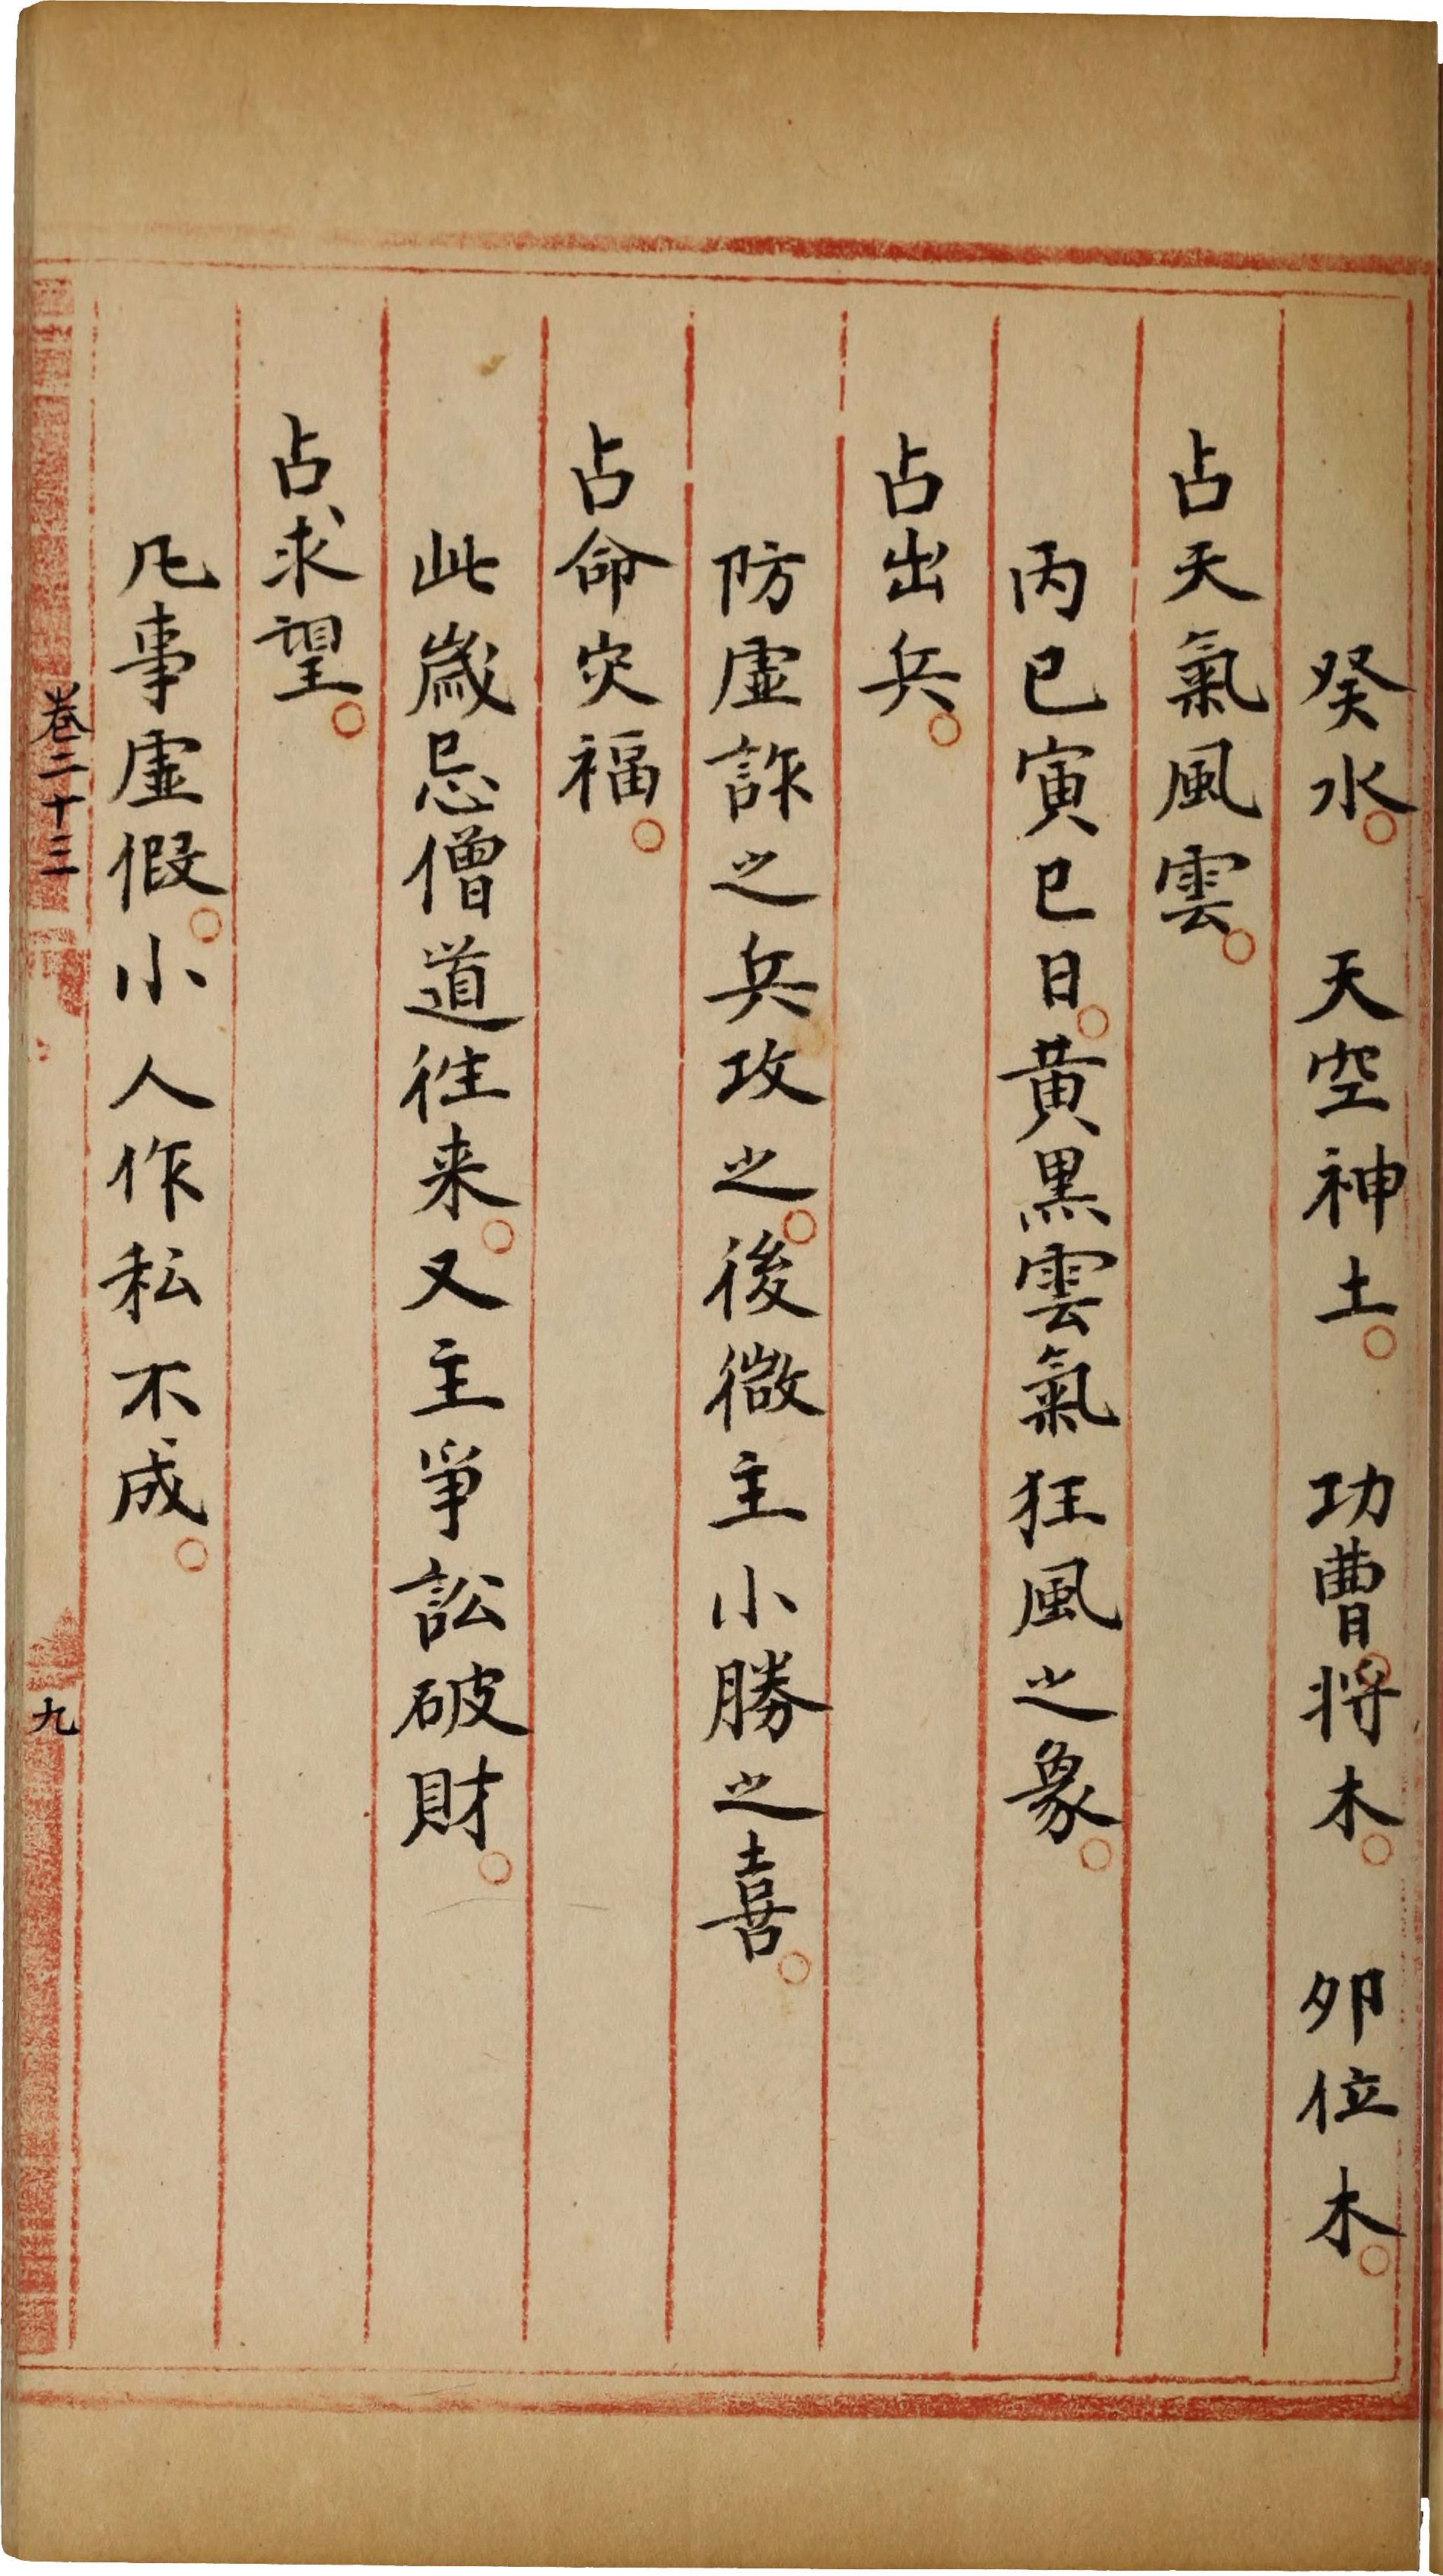 癸水。　天空神土。　功曹。将木。　夘位木。
占天氣風雲。
丙巳寅巳日。黄黑雲氣狂風之象。
占出兵。
防虛詐之兵攻之。後微主小勝之喜。
占命灾福。
此歲忌僧道徃来。又主爭訟破財。
占求望。
凡事虛假。小人作私不成。
卷二十三
九